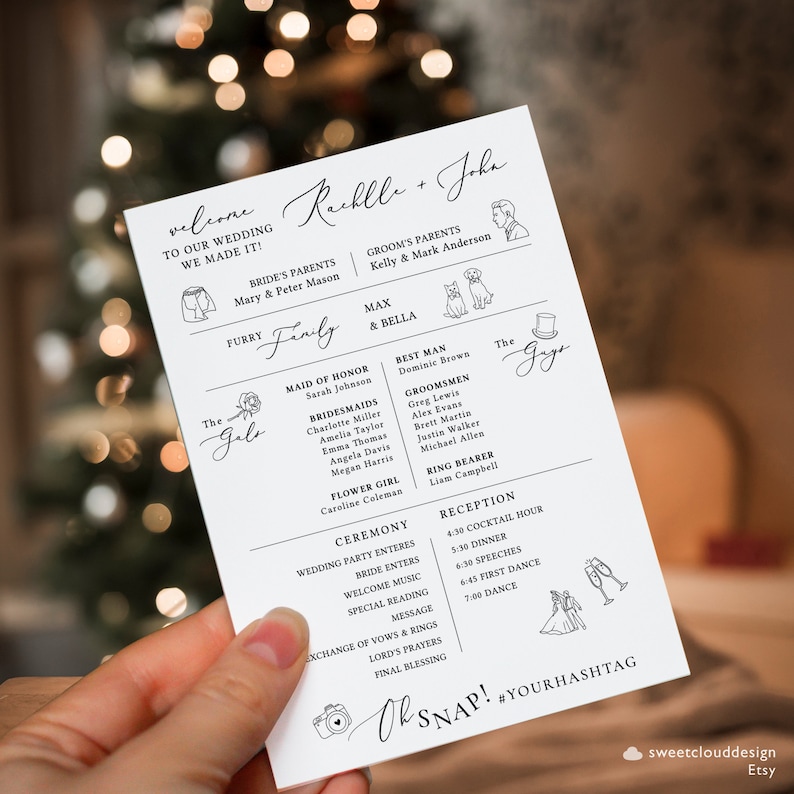 welcome
TO OUR WEDDING
WE MADE IT!
Rachlle + John
BRIDE'S PARENTS
Mary & Peter Mason
GROOM'S PARENTS
Kelly & Mark Anderson
FURRY Family
MAX
& BELLA
The
Gals
MAID OF HONOR
Sarah Johnson
BRIDESMAIDS
Charlotte Miller
Amelia Taylor
Emma Thomas
Angela Davis
Megan Harris
FLOWER GIRL
Caroline Coleman
BEST MAN
Dominic Brown
GROOMSMEN
Greg Lewis
Alex Evans
Brett Martin
Justin Walker
Michael Allen
RING BEARER
Liam Campbell
The
Guys
CEREMONY
WEDDING PARTY ENTERES
BRIDE ENTERS
WELCOME MUSIC
SPECIAL READING
MESSAGE
EXCHANGE OF VOWS & RINGS
LORD'S PRAYERS
FINAL BLESSING
RECEPTION
4:30 COCKTAIL HOUR
5:30 DINNER
6:30 SPEECHES
6:45 FIRST DANCE
7:00 DANCE
Oh SNAP! #YOURHASHTAG
sweetclouddesign
Etsy